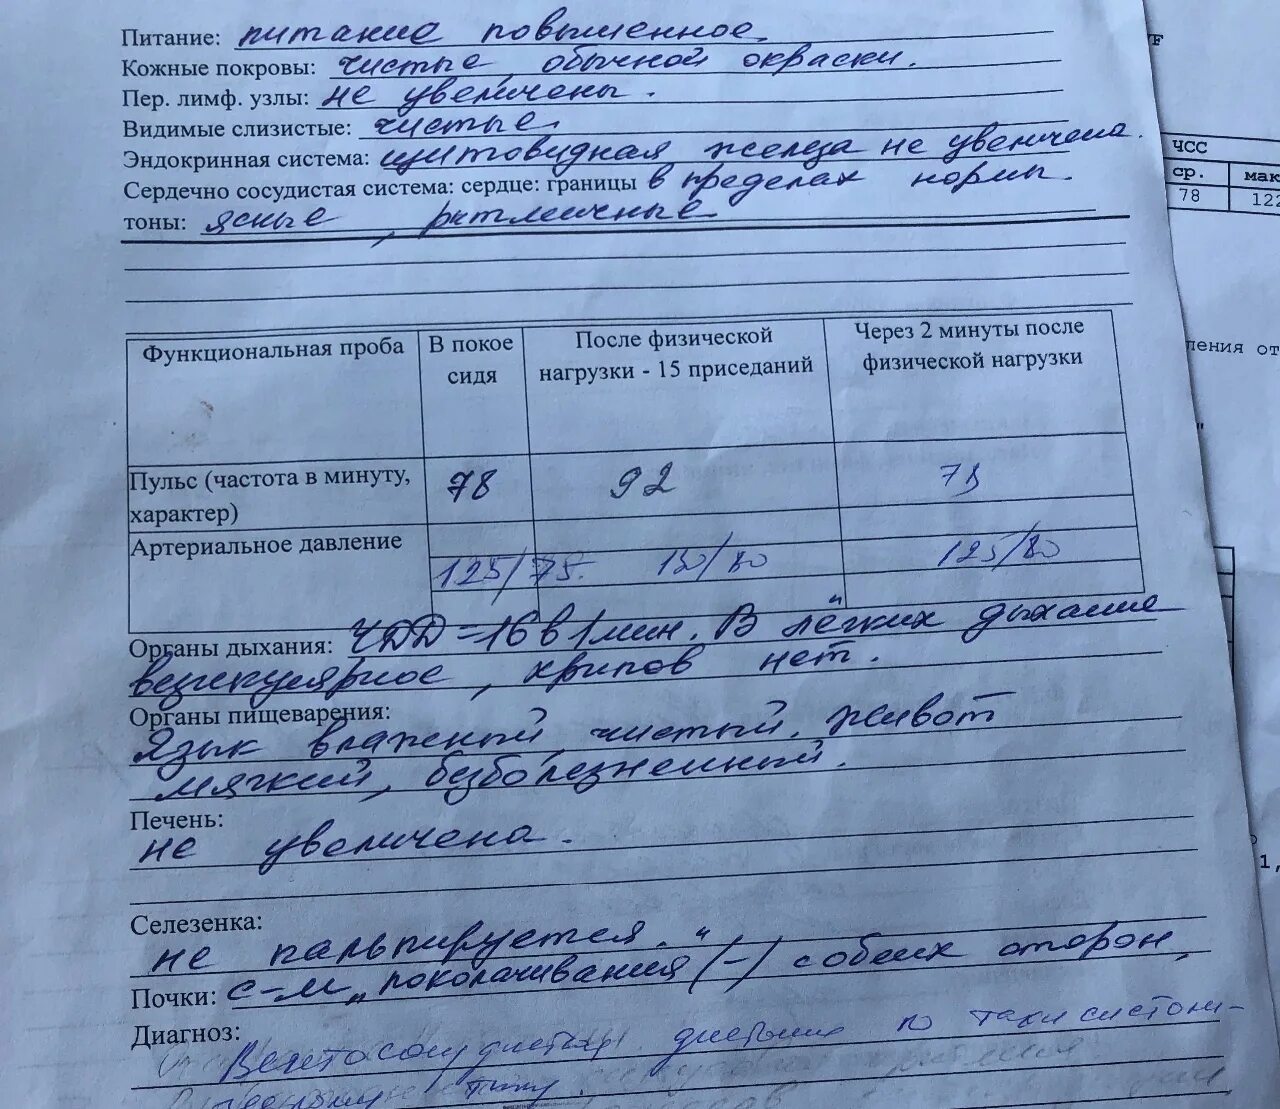 Питание: питание повышенное
Кожные покровы: чистые, обычной окраски.
Пер. лимф. узлы: не увеличены.
Видимые слизистые: чистые.
Эндокринная система: щитовидная железа не увеличена.
Сердечно сосудистая система: сердце: границы в пределах нормы.
тоны: ясные, ритмичные
Функциональная проба
В покое
сидя
После физической
нагрузки - 15 приседаний
Через 2 минуты после
физической нагрузки
Пульс (частота в минуту,
характер)
78
92
78
Артериальное давление
125/75.
125/80
Органы дыхания: ЧДД = 16 в 1 мин. В лёгких дыхание
везикулярное, хрипов нет.
Органы пищеварения:
Язык влажный, чистый. Живот
мягкий, безболезненный.
Печень:
не увеличена.
Селезенка:
не пальпируется.
Почки: с-м "поколачивания" (-) с обеих сторон,
Диагноз:
по
типу.
ЧСС
ср.
мак
78
122
ления от
1,